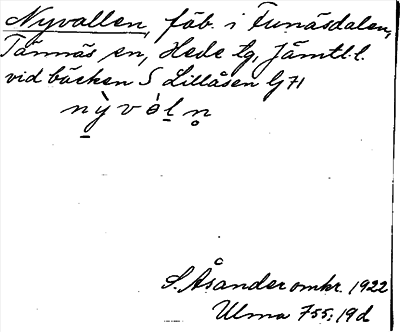 Nyvallen, fäb. i Funäsdalen,
Tännäs sn, Hede tg, Jämtl. l.
vid bäcken S Lillåsen G 71
n̲ỳvòl̲n̥
S. Åsander omkr. 1922
Ulma 755:19d